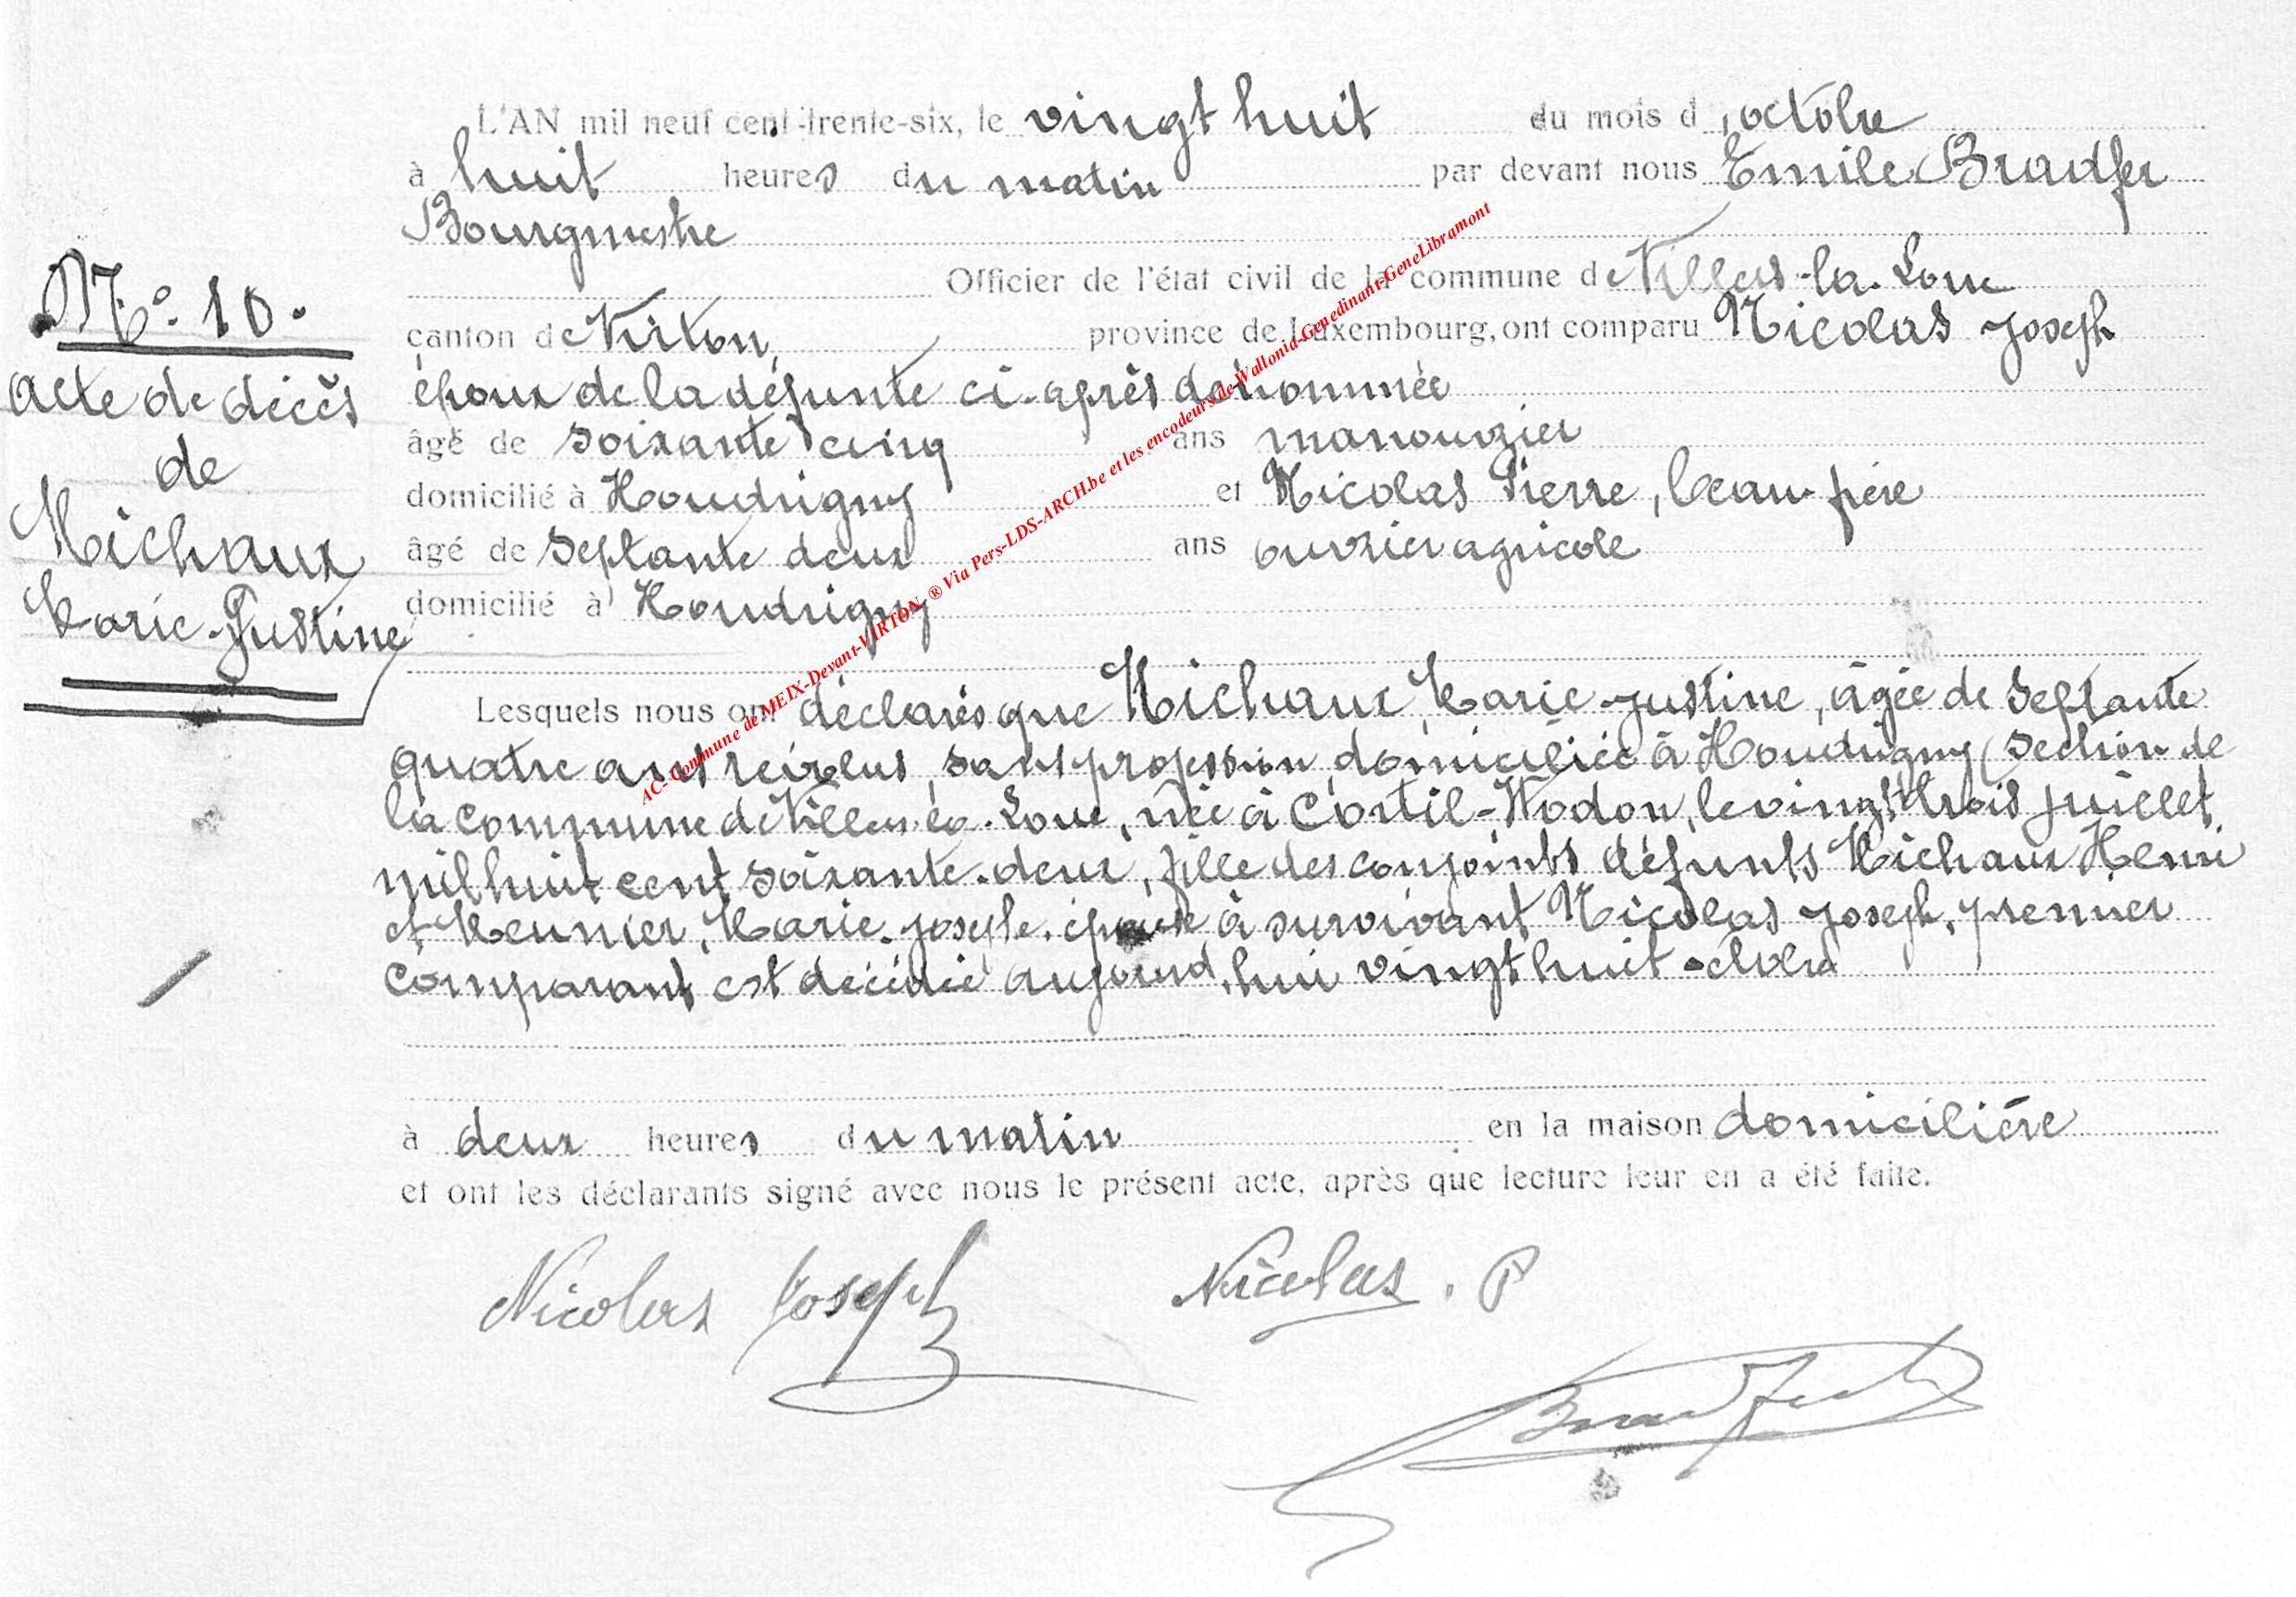 L'AN mil neuf cent trente-six, le vingt huit du mois d'octobre
à huit heures du matin par devant nous Emile Bradfer
Bourgmestre
Officier de l'état civil de la commune de Villers-la-Loue
canton de Virton, province de Luxembourg, ont comparu Nicolas Joseph
époux de la défunte ci-après dénommée
âgé de soixante cinq ans manouvrier
domicilié à Houdrigny et Nicolas Pierre, beau-frère
âgé de septante deux ans ouvrier agricole
domicilié à Houdrigny
N° 10.
Acte de décès
de
Michaux
Marie-Justine
Lesquels nous ont déclarés que Michaux Marie-Justine, âgée de septante
quatre ans révolus, sans profession, domiciliée à Houdrigny (section de
la commune de Villers-la-Loue, née à Cortil-Wodon, le vingt trois juillet
mil huit cent soixante-deux, fille des conjoints défunts Michaux Henri
et Meunier, Marie-Josephe, épouse à survivant Nicolas Joseph, premier
comparant est décédée aujourd'hui vingt huit octobre
à deux heures du matin en la maison domicilière
et ont les déclarants signé avec nous le présent acte, après que lecture leur en a été faite.
Nicolas Joseph Nicolas. P
Bradfer
AC-Commune de MEIX-Devant-VIRTON ® Via Pers-LDS-ARCH.be et les encodeurs de Wallonia-Genedinant-GeneLibramont